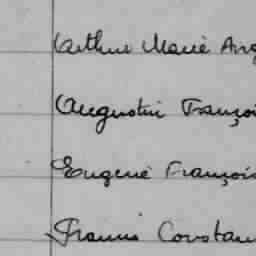 Arthur Marie Ang
Augustin Françoi
Eugène François
Francis Constan